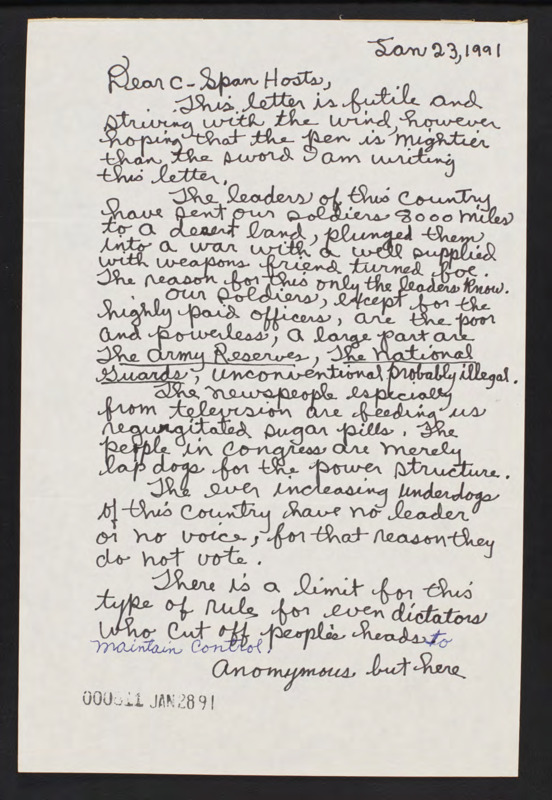 Jan 23, 1991
Dear C-Span Hosts,
This letter is futile and
striving with the wind, however
hoping that the pen is mightier
than the sword I am writing
this letter.
The leaders of this country
have sent our soldiers 8000 miles
to a desert land, plunged them
into a war with a well supplied
with weapons friend turned foe.
The reason for this only the leaders know.
Our soldiers, except for the
highly paid officers, are the poor
and powerless, a large part are
The Army Reserves, The National
Guards, unconventional probably illegal.
The newspeople especially
from television are feeding us
regurgitated sugar pills. The
people in congress are merely
lap dogs for the power structure.
The ever increasing underdogs
of this country have no leader
or no voice, for that reason they
do not vote.
There is a limit for this
type of rule for even dictators
who cut off people's heads to
maintain control.
Anonymous but here
JAN 28 91